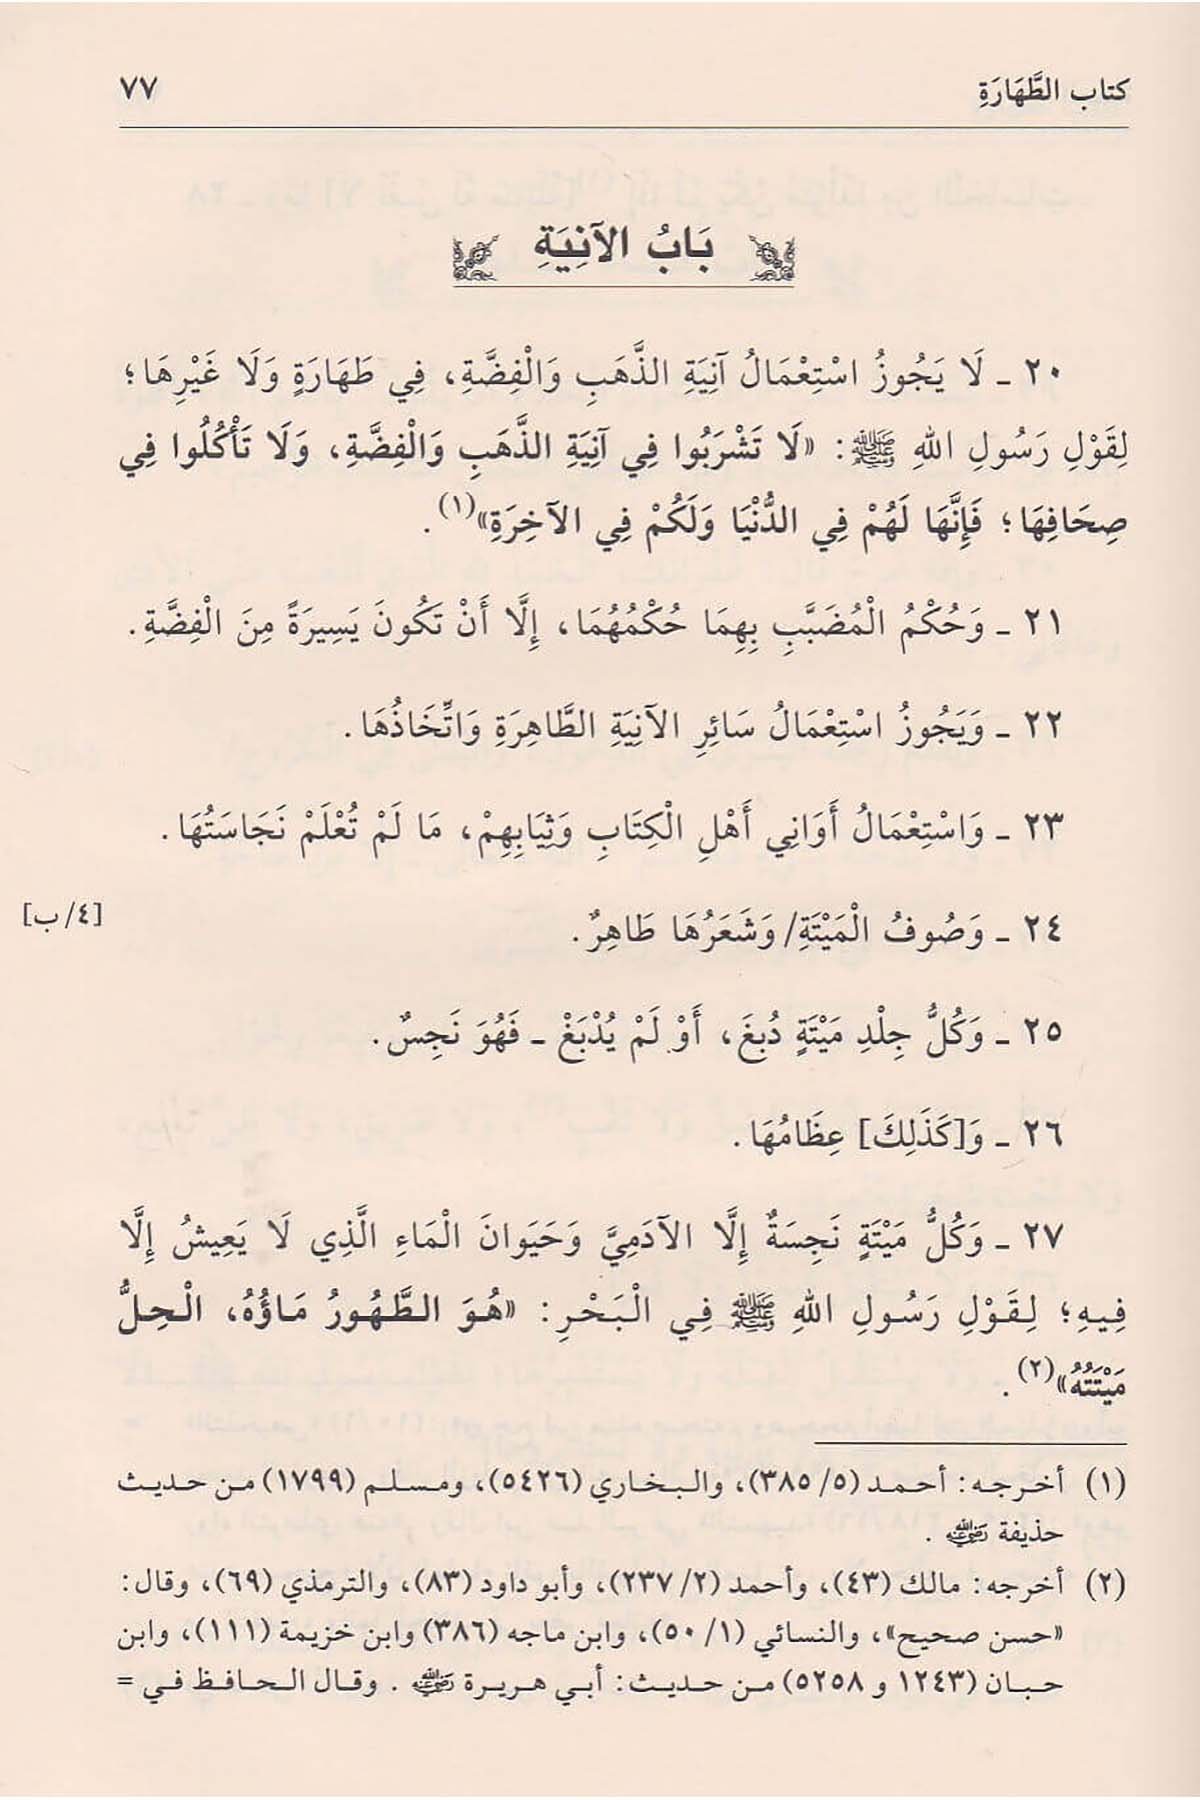 كتاب الطَّهَارَةِ ٧٧
بَابُ الآنِيَةِ
٢٠ ـ لَا يَجُوزُ اسْتِعْمَالُ آنِيَةِ الذَّهَبِ وَالْفِضَّةِ، فِي طَهَارَةٍ وَلَا غَيْرِهَا؛
لِقَوْلِ رَسُولِ اللهِ ﷺ: «لَا تَشْرَبُوا فِي آنِيَةِ الذَّهَبِ وَالْفِضَّةِ، وَلَا تَأْكُلُوا فِي
صِحَافِهَا؛ فَإِنَّهَا لَهُمْ فِي الدُّنْيَا وَلَكُمْ فِي الآخِرَةِ»(١).
٢١ ـ وَحُكْمُ الْمُضَبَّبِ بِهِمَا حُكْمُهُمَا، إِلَّا أَنْ تَكُونَ يَسِيرَةً مِنَ الْفِضَّةِ.
٢٢ ـ وَيَجُوزُ اسْتِعْمَالُ سَائِرِ الآنِيَةِ الطَّاهِرَةِ وَاتِّخَاذُهَا.
٢٣ ـ وَاسْتِعْمَالُ أَوَانِي أَهْلِ الْكِتَابِ وَثِيَابِهِمْ، مَا لَمْ تُعْلَمْ نَجَاسَتُهَا.
٢٤ ـ وَصُوفُ الْمَيْتَةِ/ وَشَعَرُهَا طَاهِرٌ. [٤/ ب]
٢٥ ـ وَكُلُّ جِلْدِ مَيْتَةٍ دُبِغَ، أَوْ لَمْ يُدْبَغْ ـ فَهُوَ نَجِسٌ.
٢٦ ـ وَ[كَذَلِكَ] عِظَامُهَا.
٢٧ ـ وَكُلُّ مَيْتَةٍ نَجِسَةٌ إِلَّا الآدَمِيَّ وَحَيَوانَ الْمَاءِ الَّذِي لَا يَعِيشُ إِلَّا
فِيهِ؛ لِقَوْلِ رَسُولِ اللهِ ﷺ فِي الْبَحْرِ: «هُوَ الطَّهُورُ مَاؤُهُ، الْحِلُّ
مَيْتَتُهُ»(٢).
(١) أخرجه: أحمد (٥/ ٣٨٥)، والبخاري (٥٤٢٦)، ومسلم (١٧٩٩) من حديث
حذيفة رضي الله عنه.
(٢) أخرجه: مالك (٤٣)، وأحمد (٢/ ٢٣٧)، وأبو داود (٨٣)، والترمذي (٦٩)، وقال:
«حسن صحيح»، والنسائي (١/ ٥٠)، وابن ماجه (٣٨٦) وابن خزيمة (١١١)، وابن
حبان (١٢٤٣ و ٥٢٥٨) من حديث: أبي هريرة رضي الله عنه. وقال الحافظ في =